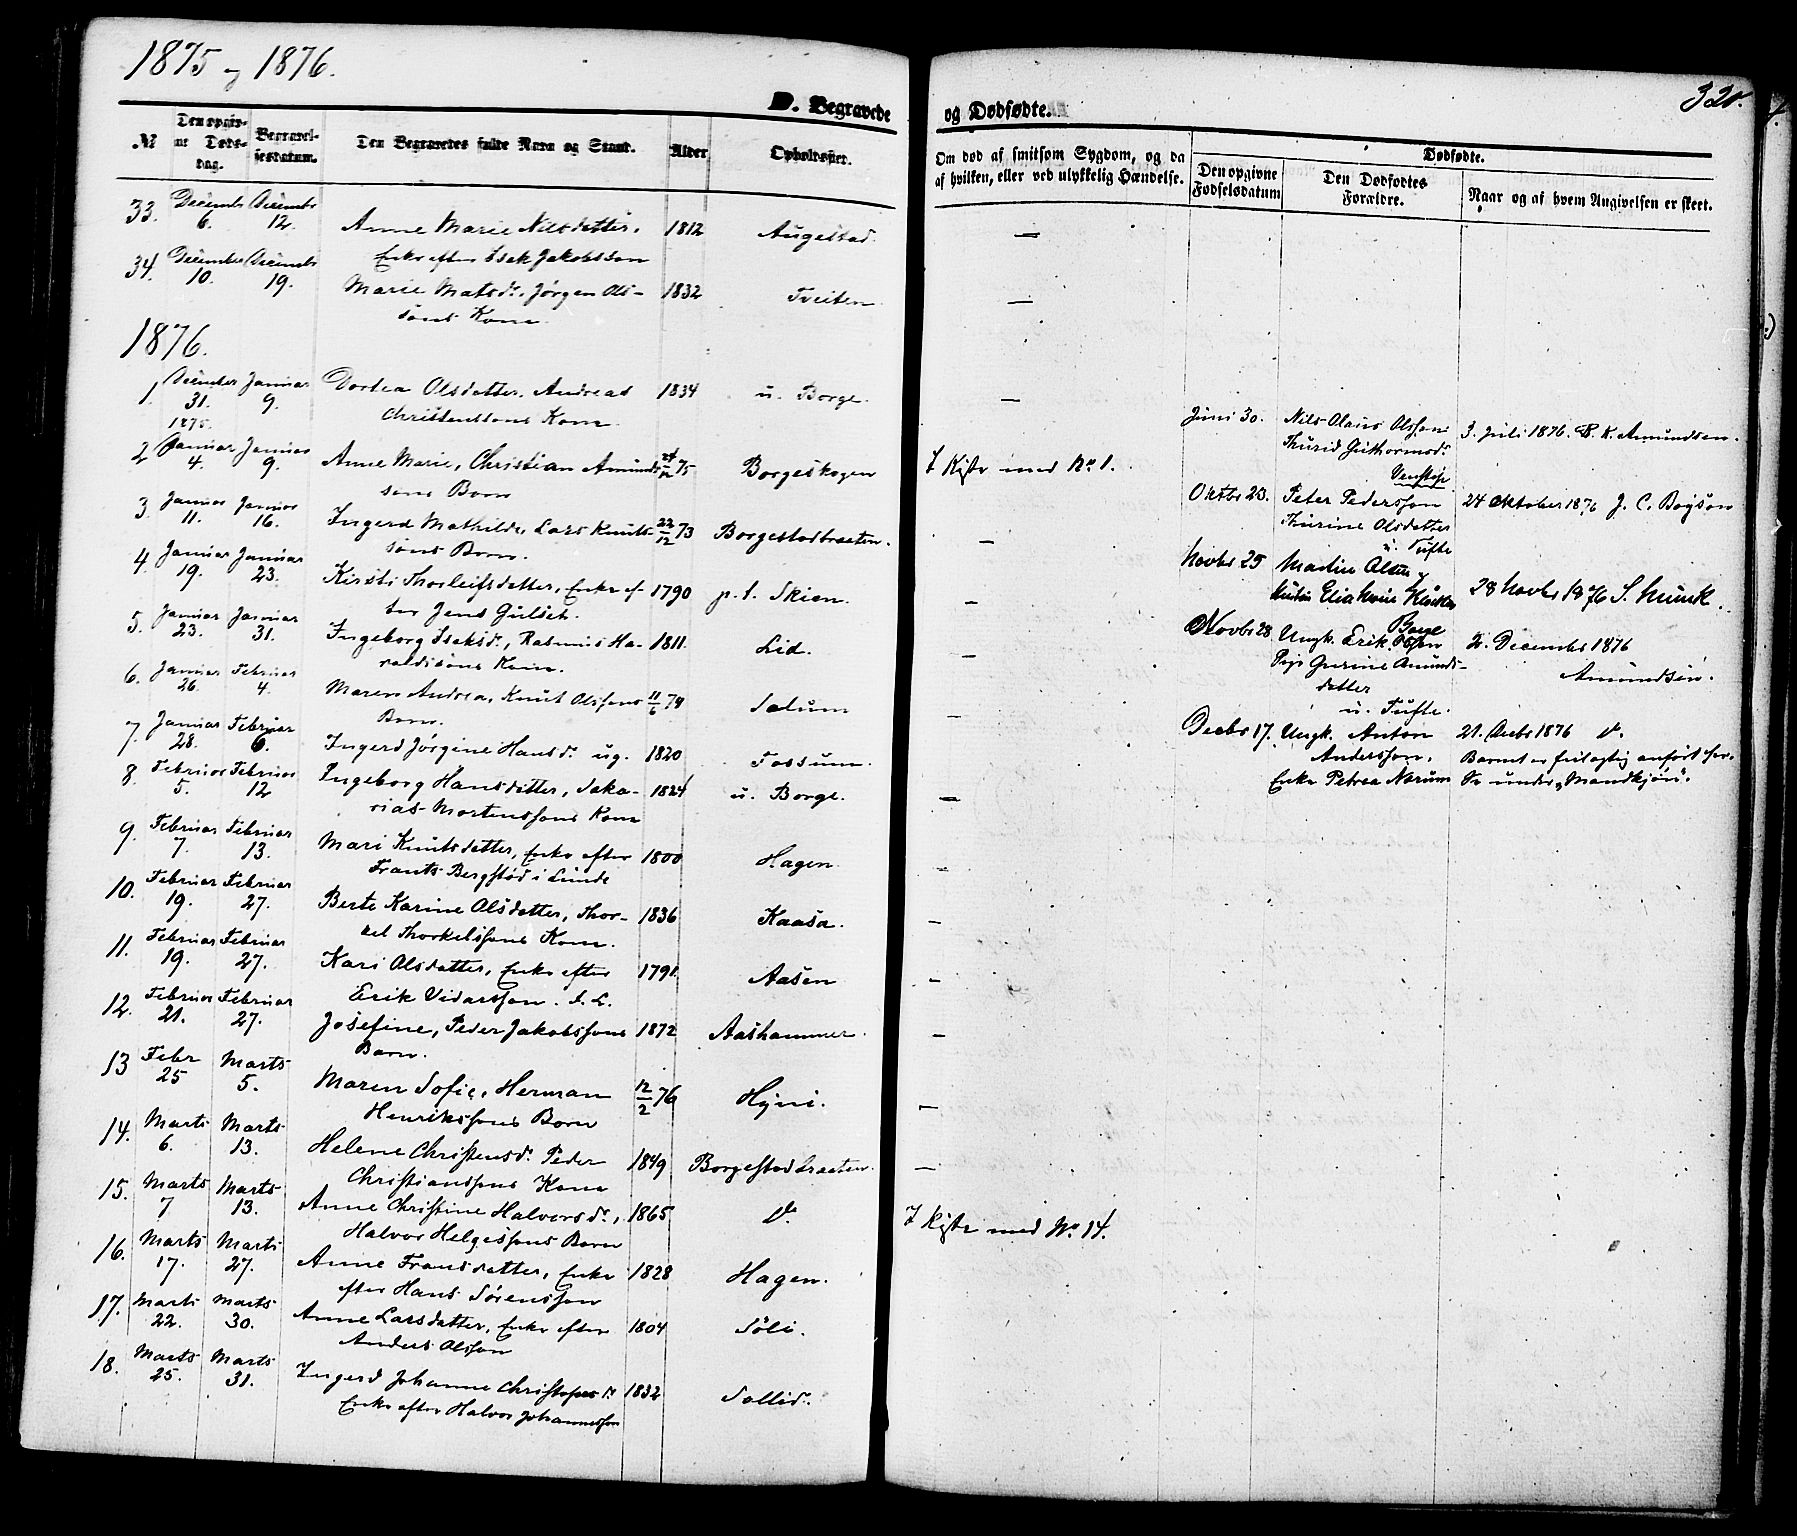 1875 og 1876.
D. Begravede
№
Den opgivne Dødsdag.
Begravelsesdatum.
Den Begravedes fulde Navn og Stand.
Alder
Opholdssted.
33. Decembr 6. Decembr 12. Anne Marie Nilsdatter, 1812 Augestad.
Enke efter Isak Jakobsson
34. December 10. Decembr 19. Marie Matsdr. Jørgen Ols- 1832 Tveiten.
søns Kone.
1876.
1. December 31. 1875. Januar 9. Dortea Olsdatter, Andreas 1834 u. Borge.
Christenssons Kone.
2 Januar 4. Januar 9. Anne Marie, Christian Amund- 75 Borgeskogen
søns Barn
3. Januar 11. Januar 16. Ingerd Mathilde, Lars Knuts- 22/12 73 Borgestadbraaten.
søns Barn.
4. Januar 19. Januar 23. Kirsti Thorleifsdatter, Enke ef- 1790 p. t. Skien.
ter Jens Gulset.
5. Januar 23. Januar 31. Ingeborg Isaksdr., Rasmus Ha- 1811. Lid.
raldsøns Kone.
6. Januar 26. Februar 4. Maren Andrea, Knut Olssons 11/6 74 Solum
Barn.
7. Januar 28. Februar 6. Ingerd Jørgine Hansdr. ug. 1820 Fossum.
8. Februar 5. Februar 12 Ingeborg Hansdatter, Saka- 1824 u. Borge.
rias Mortenssons Kone
9. Februar 7. Februar 13. Mari Knutsdatter, Enke efter 1800 Hagen.
Frants Bergstød i Lunde
10. Februar 19. Februar 27. Berte Karine Olsdatter, Thor- 1836 Kaasa.
kel Thorkelssons Kone.
11. Februar 19. Februar 27. Kari Olsdatter, Enke efter 1791. Aasen
Erik Vidarsson. f. L.
12. Februar 21. Februar 27. Josefine, Peder Jakobssons 1872 Aashammer.
Barn.
13 Febr 25 Marts 5. Maren Sofie, Herman 12/2 76 Hyni.
Henrikssons Barn
14. Marts 6. Marts 13. Helene Christensdr. Peder 1849 Borgestadbraaten.
Christianssons Kone
15. Marts 7 Marts 13. Anne Christine Halvorsdr., 1865 Do.
Halvor Helgessons Barn
16. Marts 17. Marts 27. Anne Fransdatter, Enke 1828 Hagen.
efter Hans Sørensson
17. Marts 22. Marts 30. Anne Larsdatter, Enke efter 1804 Søli.
Anders Olsson
18. Marts 25. Marts 31. Ingerd Johanne Christophersdr. 1832 Sollid.
Enke efter Halvor Johannesson
320.
og Dødfødte.
Om død af smitsom Sygdom, og da
af hvilken, eller ved ulykkelig Hændelse.
Dødfødte.
Den opgivne Fødselsdatum
Den Dødfødtes Forældre.
Naar og af hvem Angivelsen er skeet.
I Kiste med No. 1.
I Kiste med No. 14.
Juni 30. Nils Olaus Olsson 3. Juli 1876. K. Amundsen.
Thurid Guthormsdr.
Venstøp
Oktbr 23. Peter Pedersson 24 Oktober 1876 J. C. Bøgson
Thurine Olsdatter
u. Tufte
Novbr 25 Martin Olsen 28 Novbr 1876 S. Munk.
Borge
Novbr 28. Ungk. Erik Olsson 2. December 1876
Pige Gurine Amunds- Amundsen.
datter
u. Tufte.
Decbr 17. Ungk. Anton 21. Decbr 1876 Do.
Andersson. Barnet er feilagtig anført her.
Enke Petrea Narum Se under „Mandkjøn“.